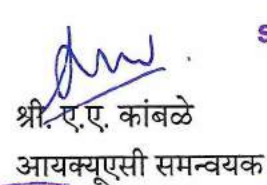 श्री. ए.ए. कांबळे
आयक्यूएसी समन्वयक